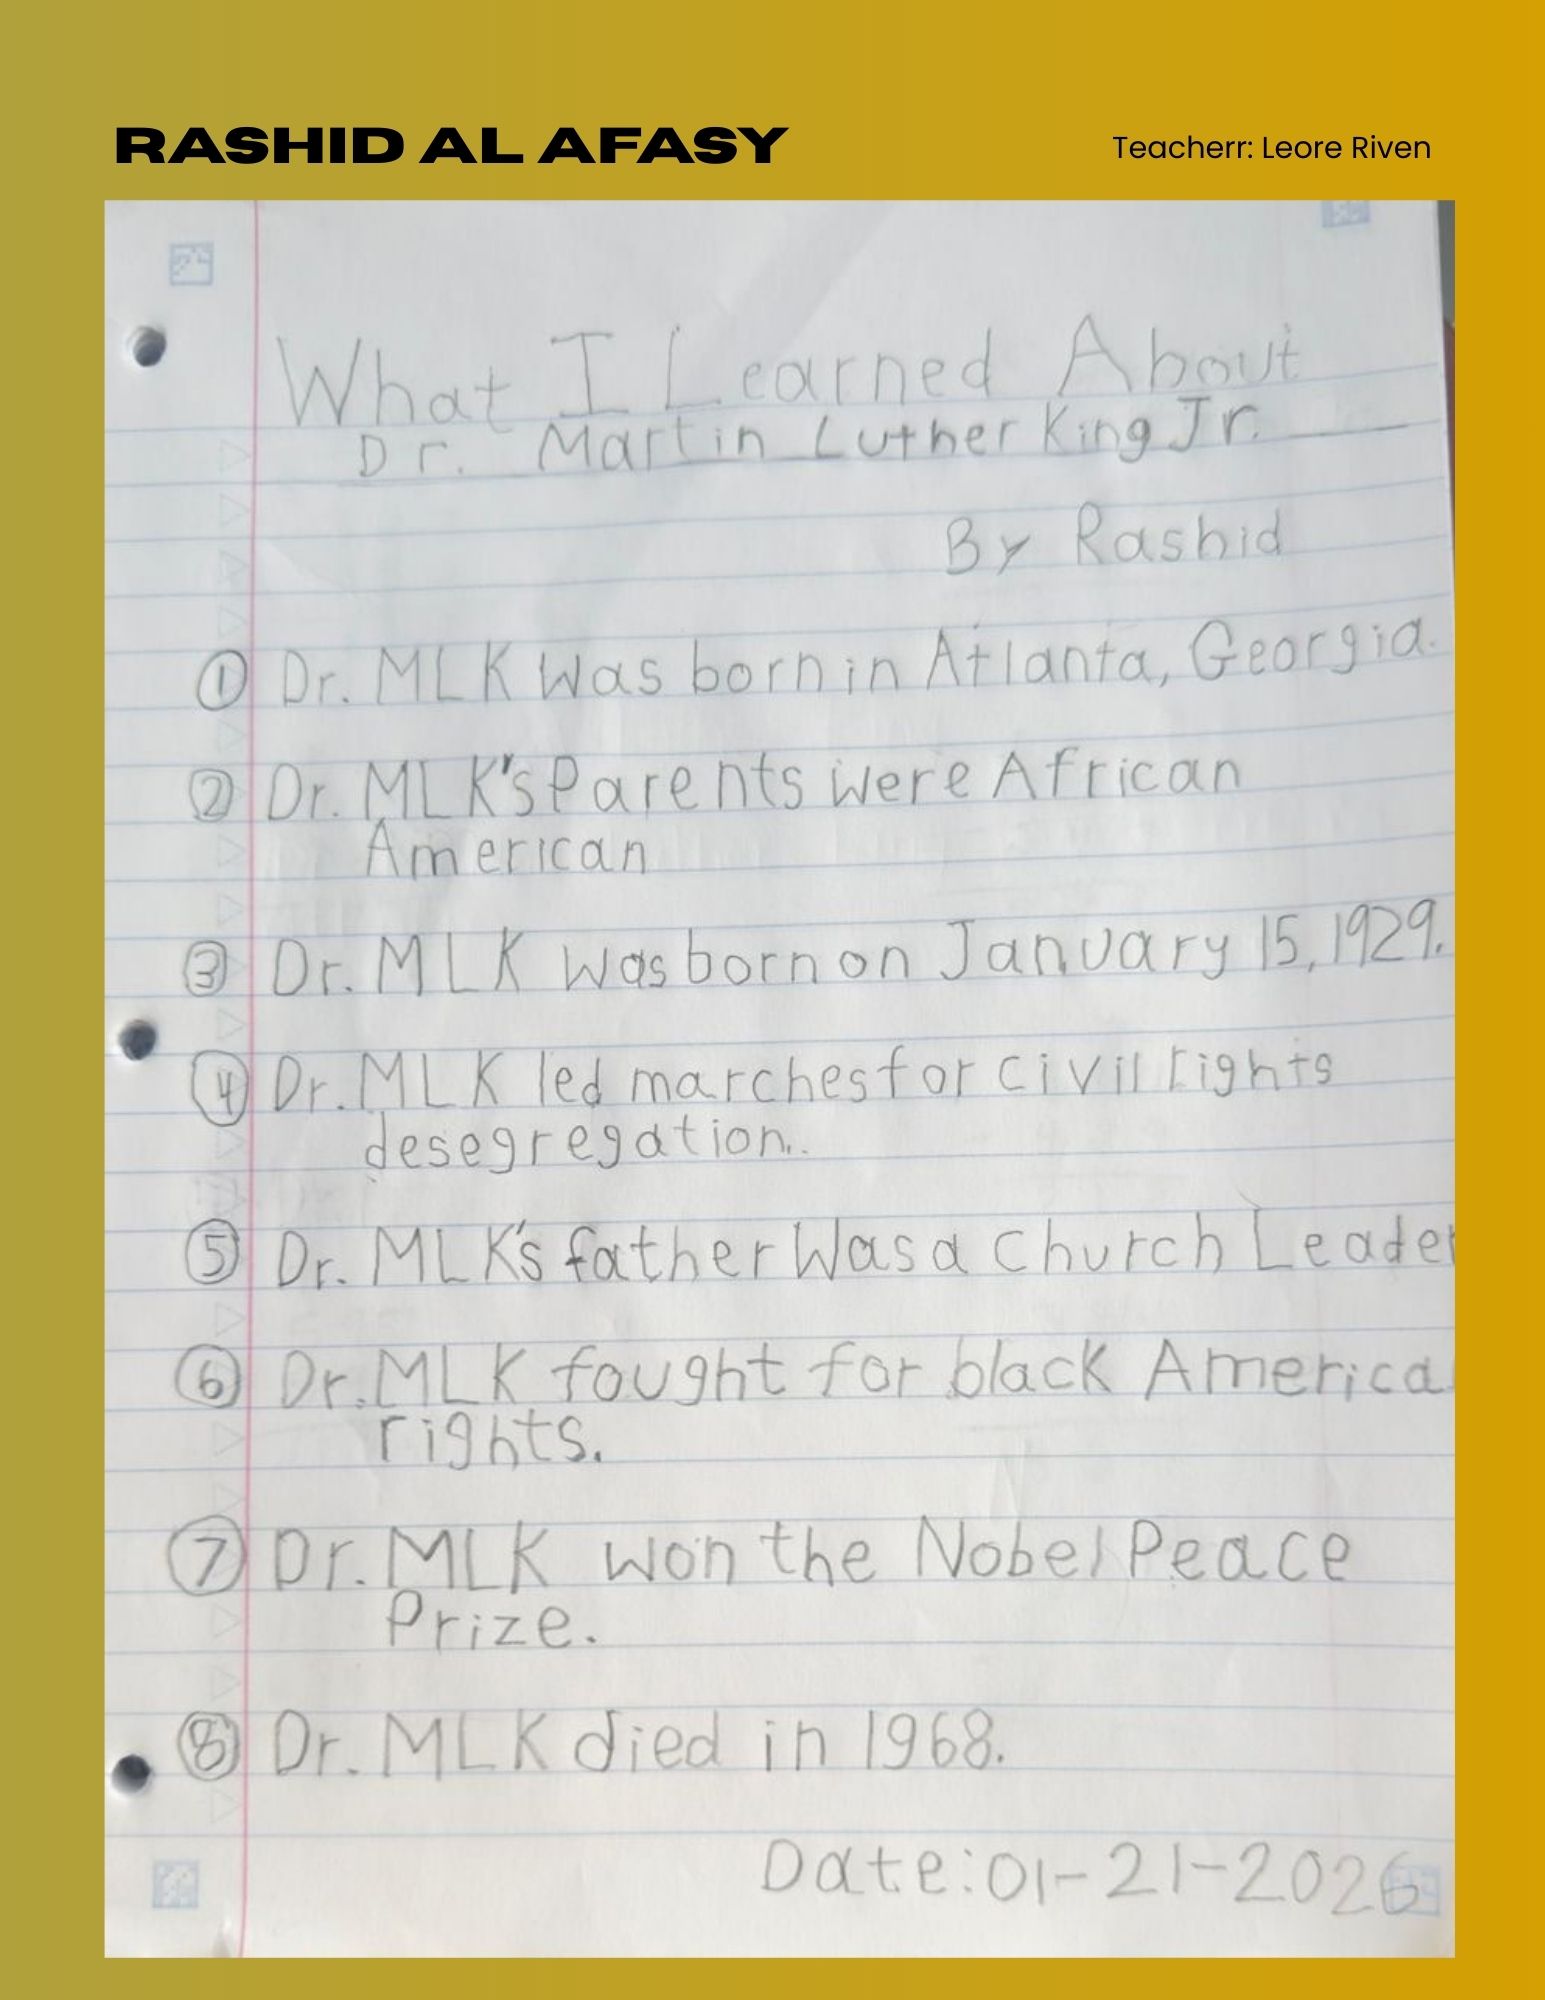 RASHID AL AFASY
Teacherr: Leore Riven
What I Learned About
Dr. Martin Luther King Jr.
By Rashid
① Dr. MLK was born in Atlanta, Georgia.
② Dr. MLK's Parents were African
American
③ Dr. MLK was born on January 15, 1929.
④ Dr. MLK led marches for civil rights
desegregation.
⑤ Dr. MLK's father Was a church Leader
⑥ Dr. MLK fought for black America
rights.
⑦ Dr. MLK won the Nobel Peace
Prize.
⑧ Dr. MLK died in 1968.
Date: 01-21-2026